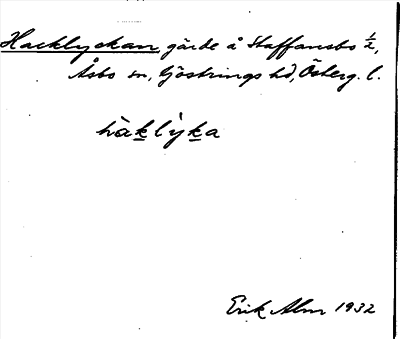 Hacklyckan, gärde å Staffansbo ½,
Åsbo sn, Göstrings hd, Österg. l.
hàklỳka
Erik Alm 1932